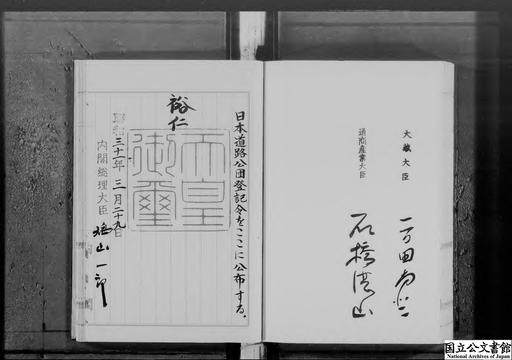 大蔵大臣
一万田尚登
通商産業大臣
石橋湛山
日本道路公団登記令をここに公布する。
裕仁
天皇御璽
昭和三十一年三月二十九日
内閣総理大臣
鳩山一郎
国立公文書館
National Archives of Japan